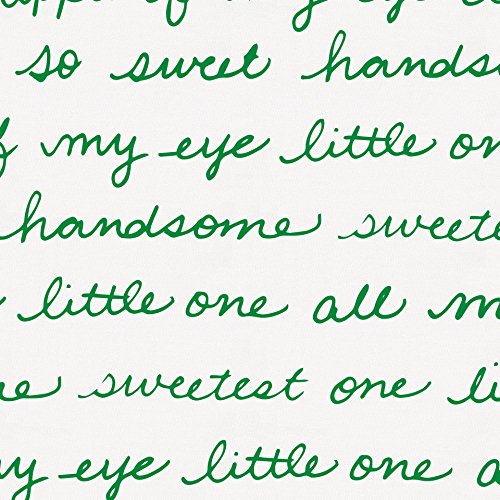 of my eye
so sweet hands
my eye little on
handsome sweete
little one all m
sweetest one li
y eye little one a